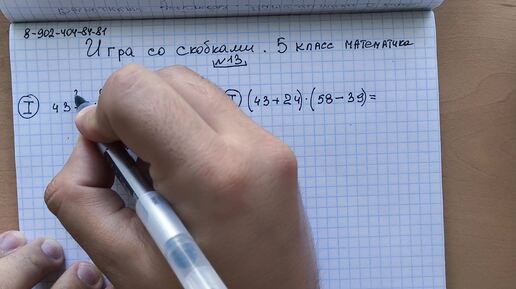 8-902-404-84-81
Игра со скобками. 5 класс математика
№13
I 43
I (43+24)·(58-39)=